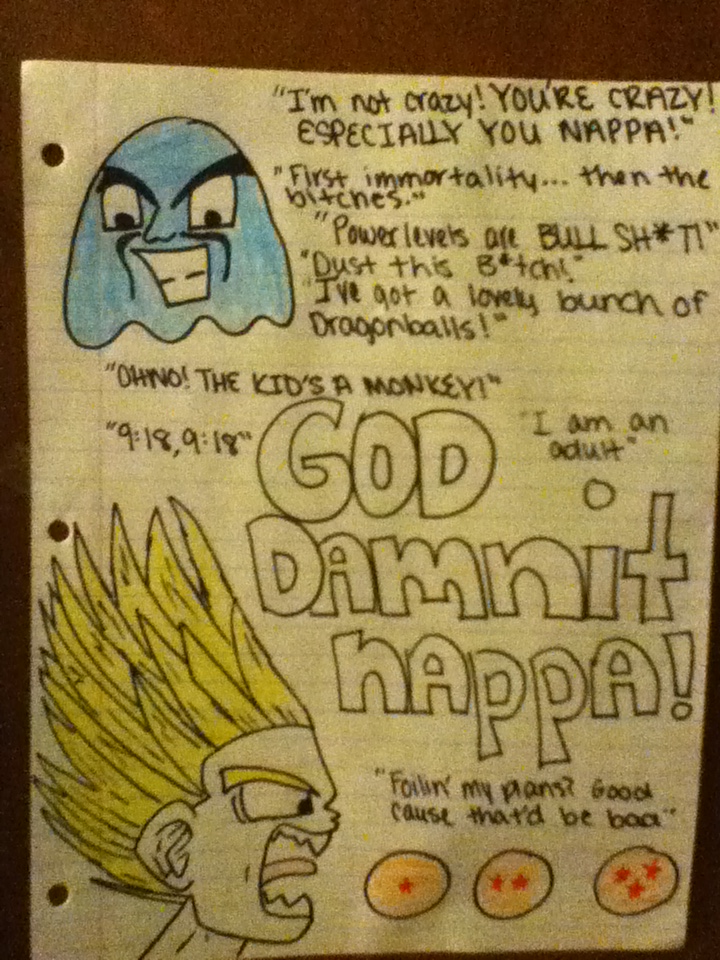 "I'm not crazy! YOU'RE CRAZY!
ESPECIALLY YOU NAPPA!"
"First immortality... then the
bitches."
"Powerlevels are BULL SH*T!"
"Dust this B*tch!"
"I've got a lovely bunch of
Dragonballs!"
"OH NO! THE KID'S A MONKEY!"
"9:18, 9:18"
"I am an
adult"
GOD
DAMnit
nAppA!
"Foilin' my plans? Good
cause that'd be baa"